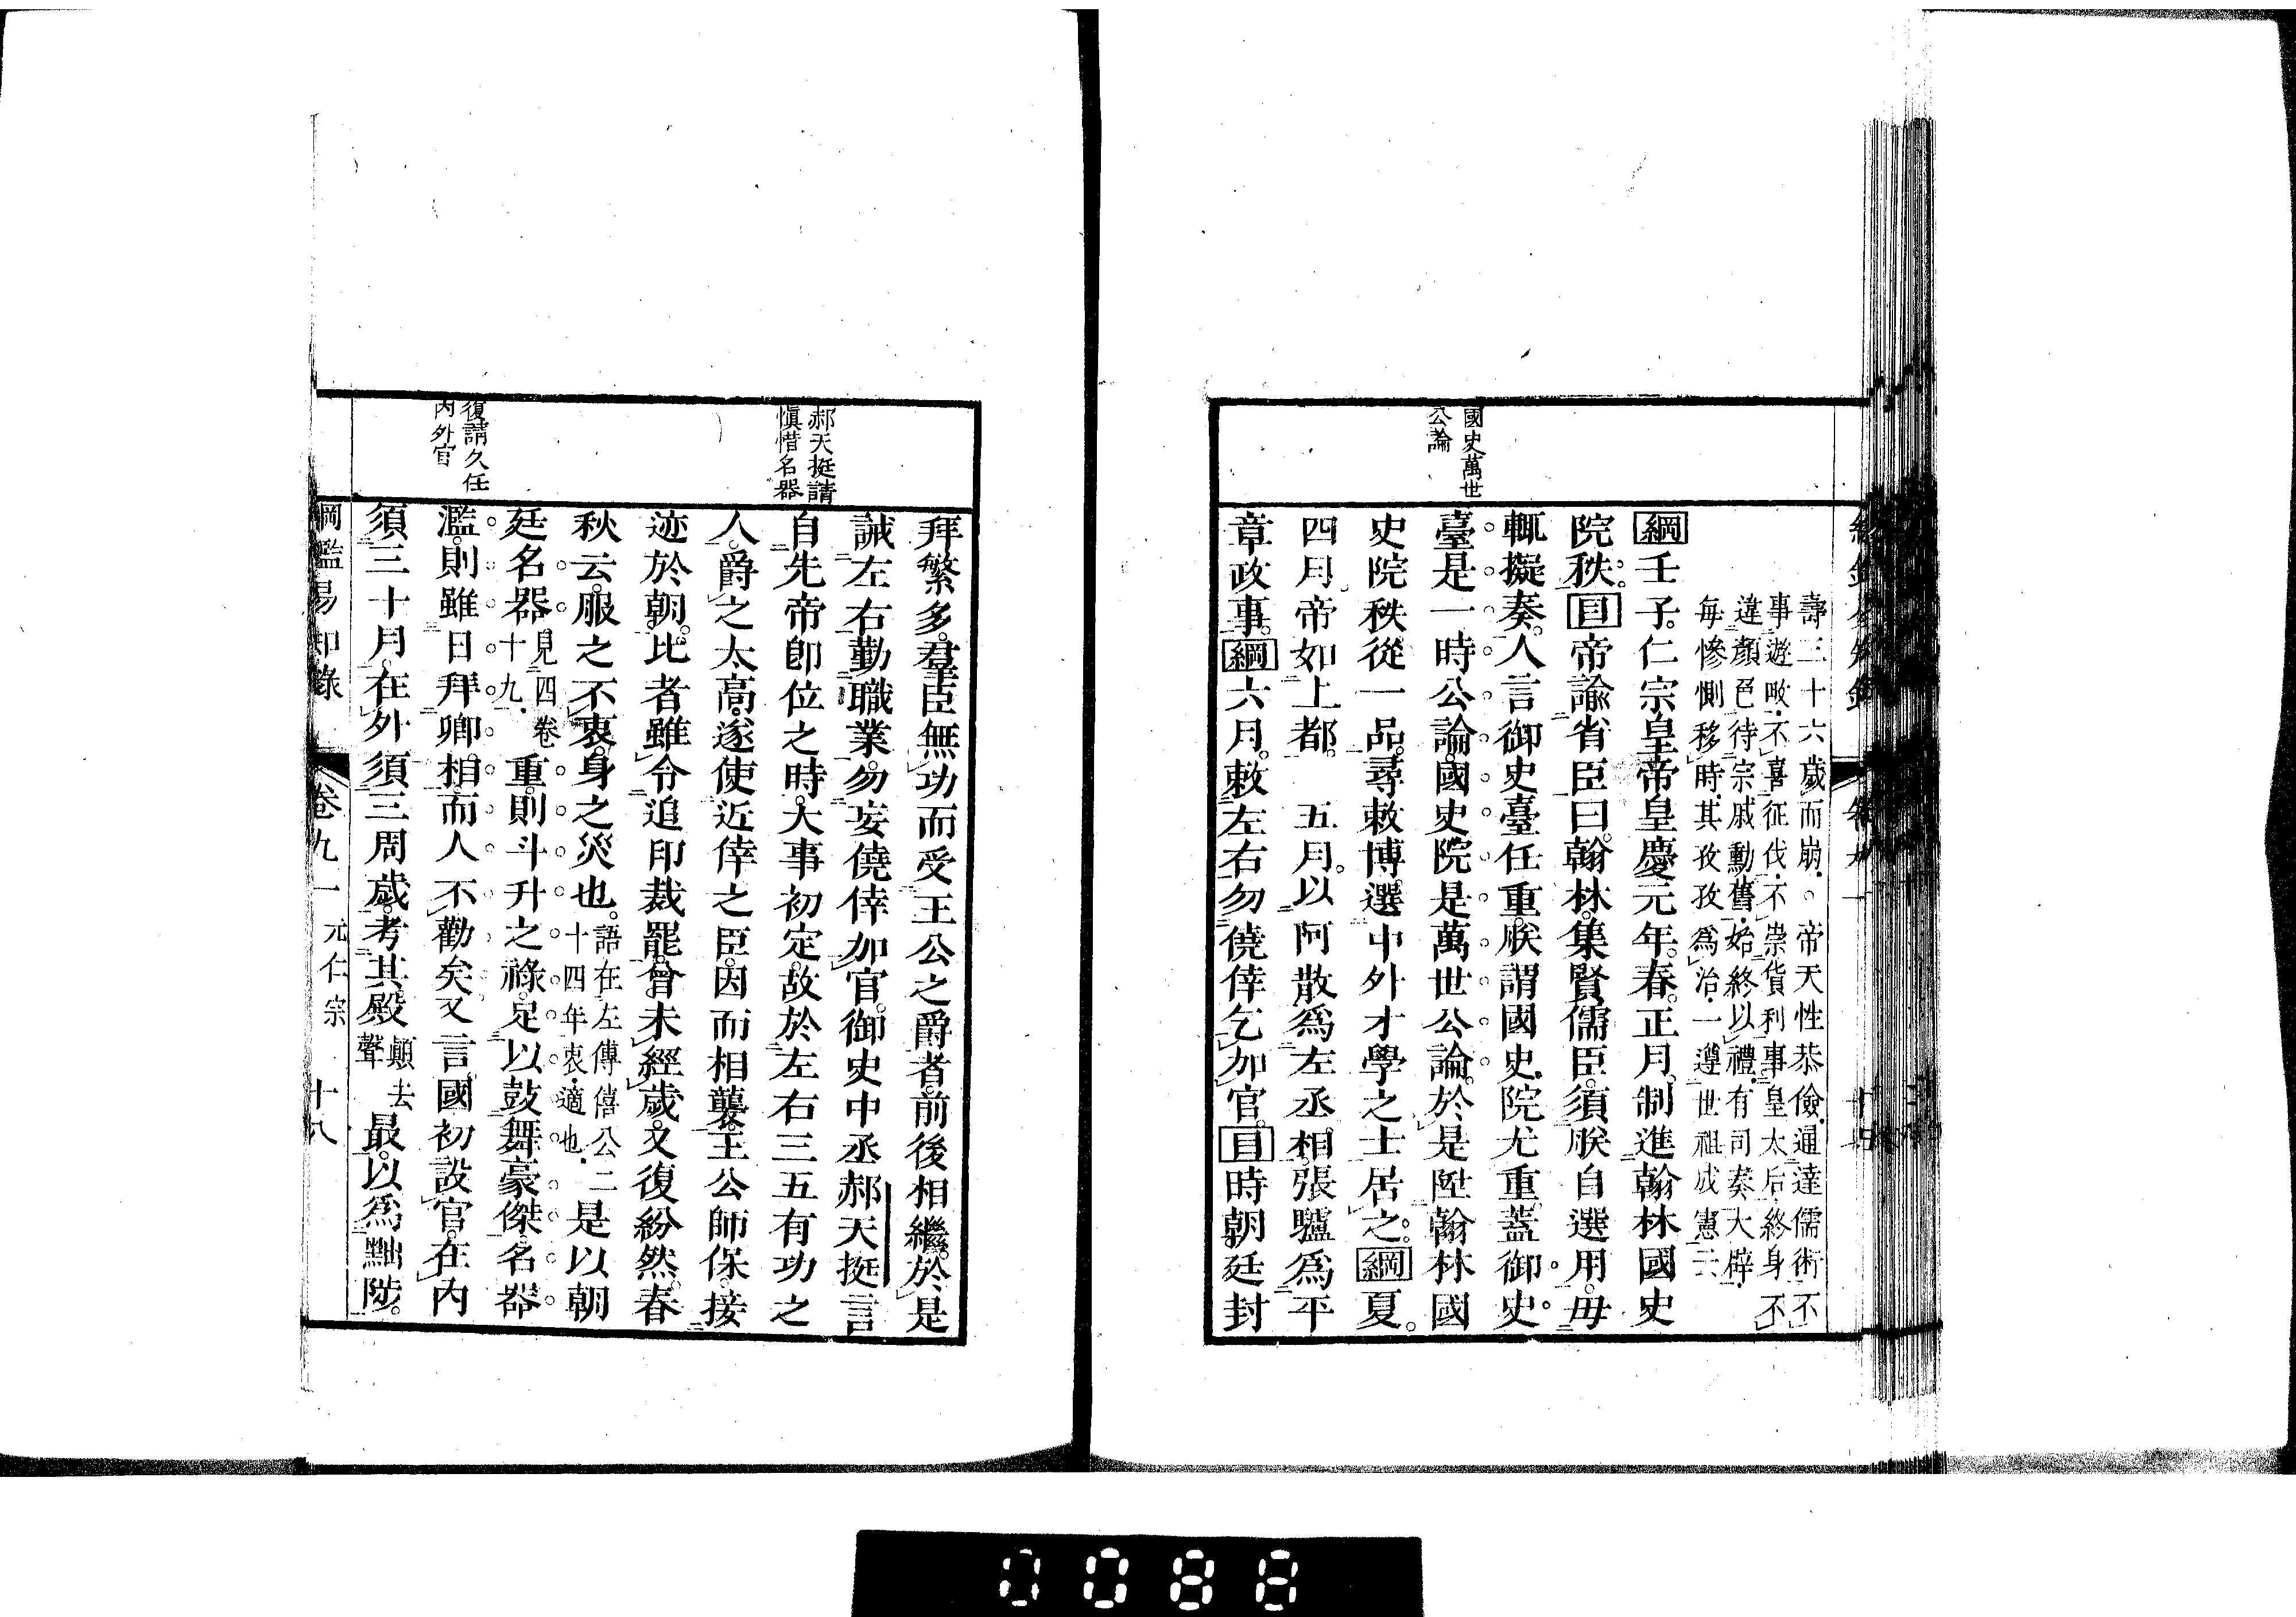 國史萬世
公論
壽三十六歲而崩○帝天性恭儉通達儒術不
事遊畋不喜征伐不崇貨利事皇太后終身不
違顏色待宗戚勳舊始終以禮有司奏大辟
每慘惻移時其孜孜爲治一遵世祖成憲云
綱壬子仁宗皇帝皇慶元年春正月制進翰林國史
院秩目帝諭省臣曰翰林集賢儒臣須朕自選用毋
輒擬奏人言御史臺任重朕謂國史院尤重蓋御史
臺是一時公論國史院是萬世公論於是陞翰林國
史院秩從一品尋敕博選中外才學之士居之綱夏
四月帝如上都 五月以阿散爲左丞相張驢爲平
章政事綱六月敕左右勿僥倖乞加官目時朝廷封
郝天挺請
愼惜名器
復請久任
內外官
拜繁多羣臣無功而受王公之爵者前後相繼於是
誡左右勤職業勿妄僥倖加官御史中丞郝天挺言
自先帝卽位之時大事初定故於左右三五有功之
人爵之太高遂使近倖之臣因而相襲王公師保接
迹於朝比者雖令追印裁罷曾未經歲又復紛然春
秋云服之不衷身之災也語在左傳僖公二十四年衷適也是以朝
廷名器見四卷十九重則斗升之祿足以鼓舞豪傑名器
濫則雖日拜卿相而人不勸矣又言國初設官在內
須三十月在外須三周歲考其殿顚去聲最以爲黜陟
綱鑑易知錄 卷九一 元仁宗 十八